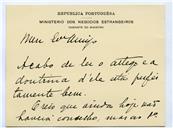 REPUBLICA PORTUGUESA
MINISTERIO DOS NEGOCIOS ESTRANGEIROS
GABINETE DO MINISTRO
Meu
Acabo de ler o artigo e a
doutrina d'ele está perfei
tamente bem.
Creio que ainda hoje não
haverá conselho, mas